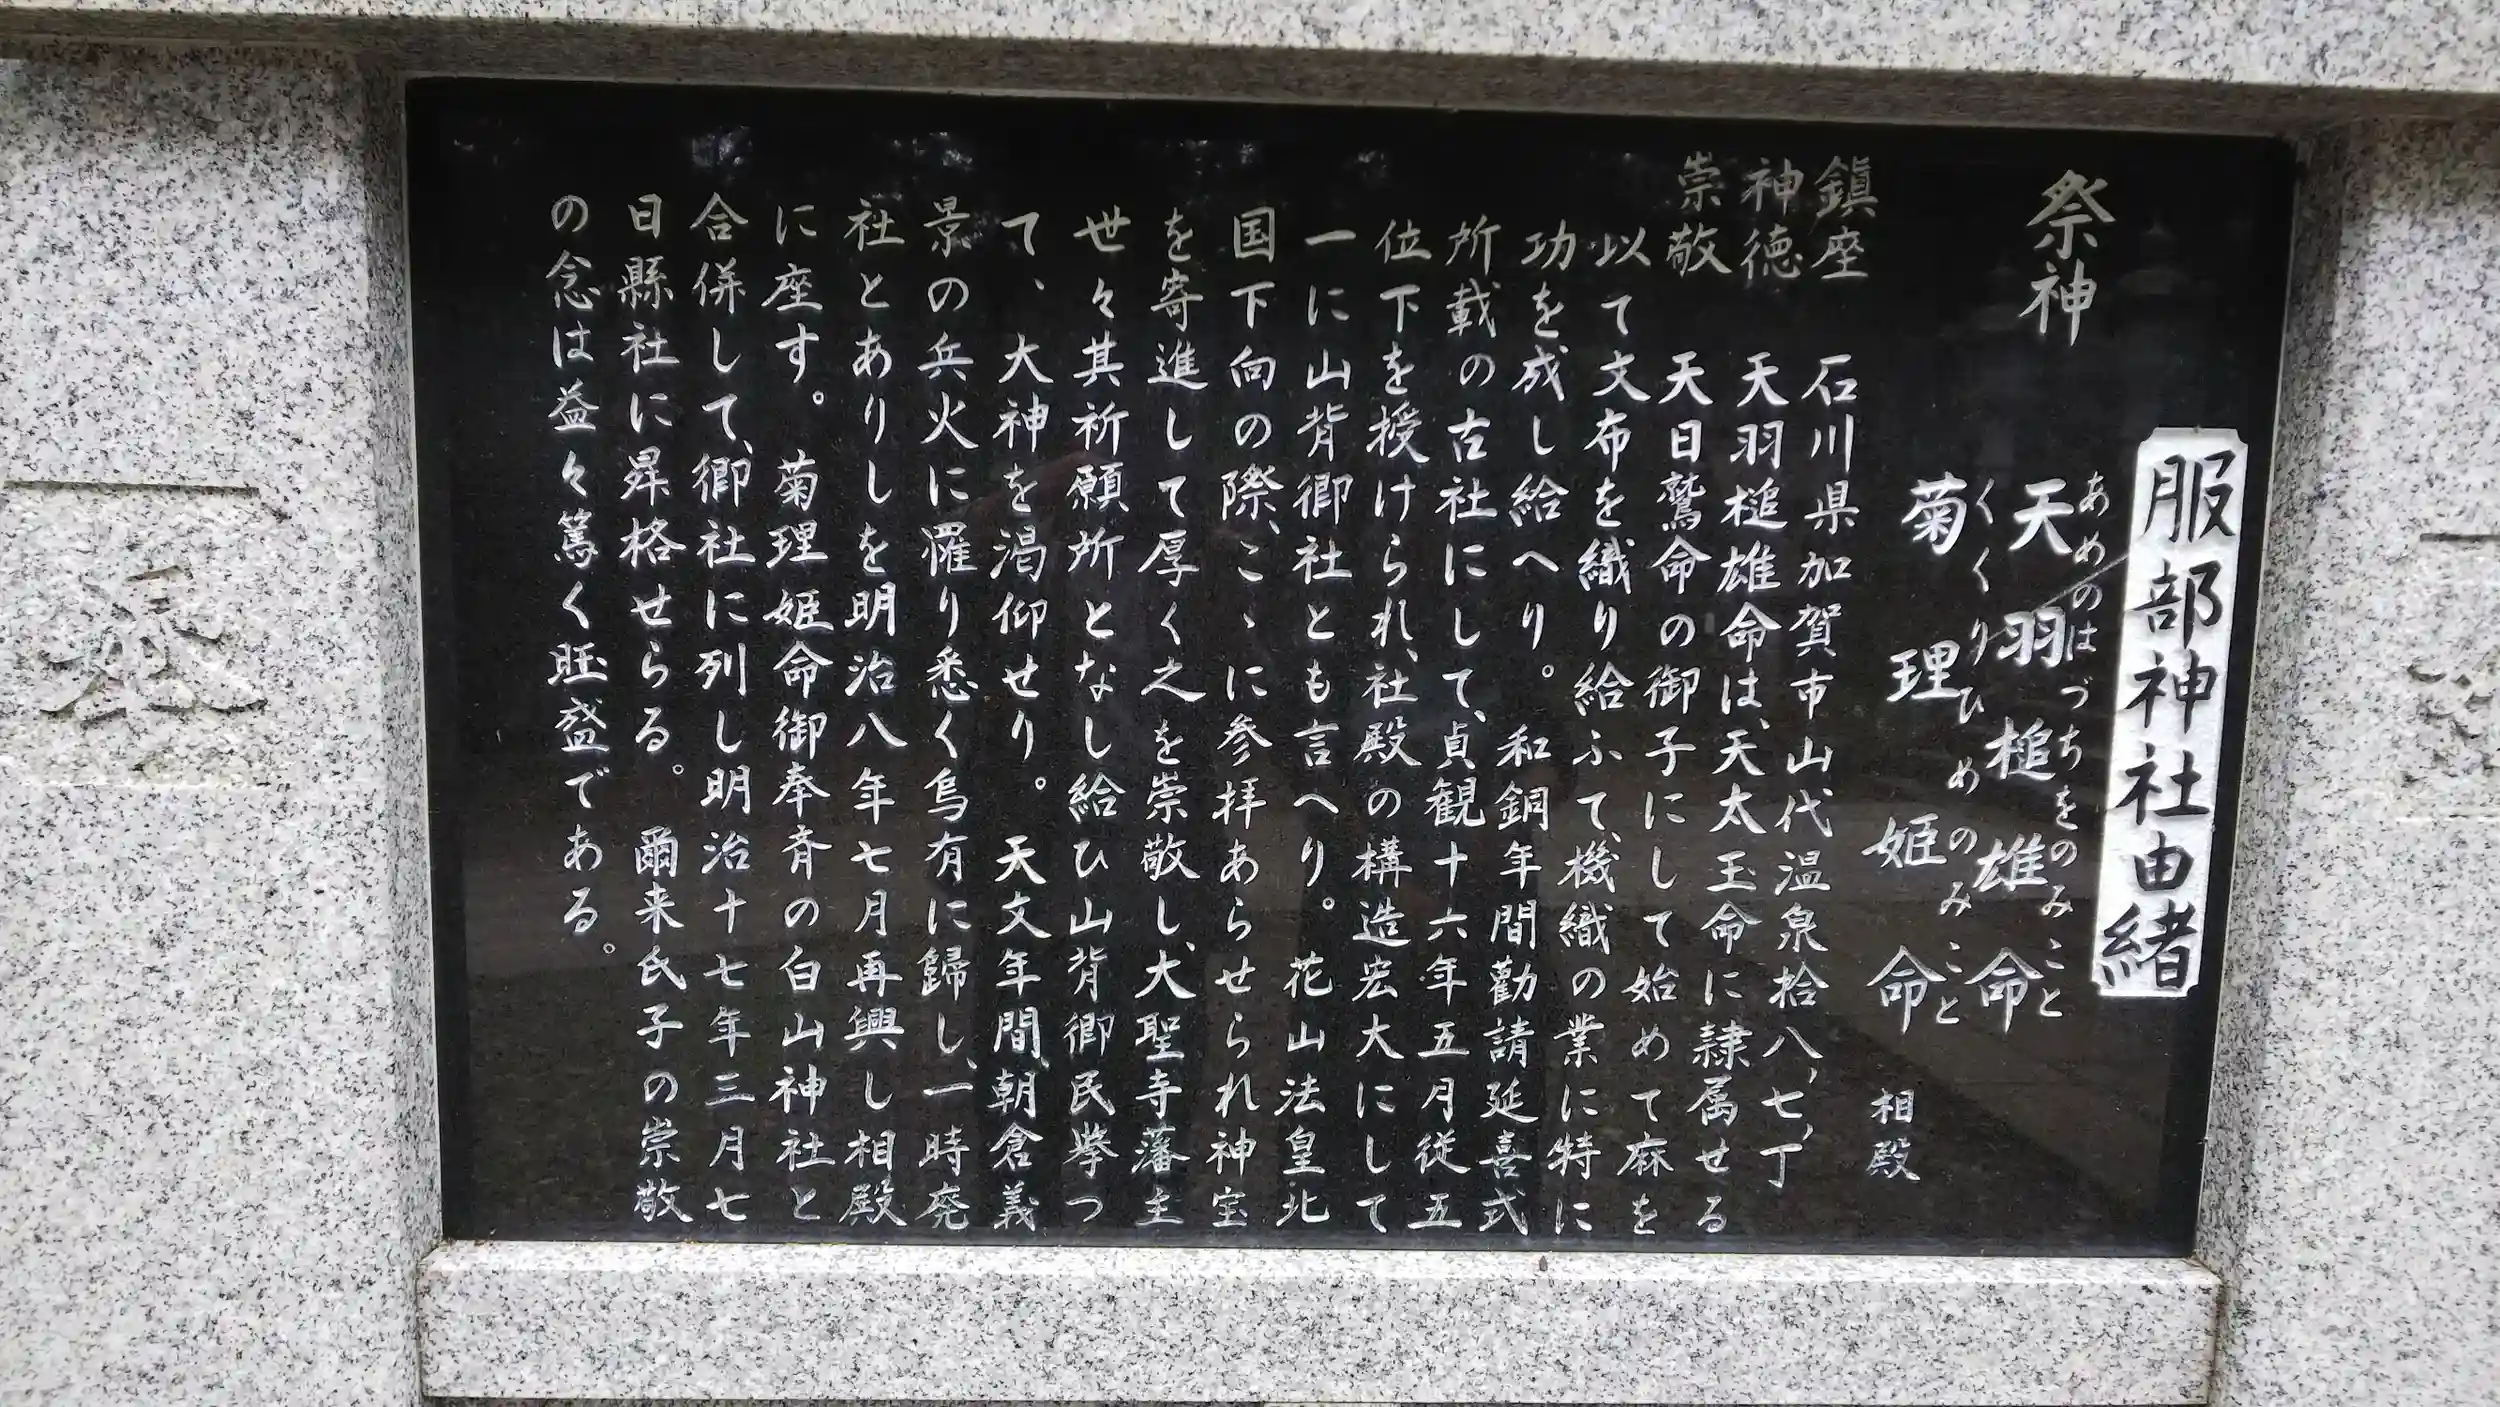 服部神社由緒
祭神
あめのはづちをのみこと
天羽槌雄命
くくりひめのみこと
菊理姫命 相殿
鎮座 石川県加賀市山代温泉拾八,七,丁
神徳 天羽槌雄命は、天太玉命に隷属せる
崇敬 天日鷲命の御子にして始めて麻を
以て文布を織り給ふて、機織の業に特に
功を成し給へり。和銅年間勸請延喜式
所載の古社にして、貞観十六年五月従五
位下を授けられ、社殿の構造宏大にして
一に山背郷社とも言へり。花山法皇北
国下向の際、こゝに参拝あらせられ神宝
を寄進して厚く之を崇敬し、大聖寺藩主
世々其祈願所となし給ひ山背郷民挙つ
て、大神を渇仰せり。天文年間、朝倉義
景の兵火に罹り悉く烏有に歸し、一時廃
社とありしを明治八年七月再興し相殿
に座す。菊理姫命御奉斉の白山神社と
合併して、郷社に列し明治十七年三月七
日縣社に昇格せらる。爾来氏子の崇敬
の念は益々篤く旺盛である。